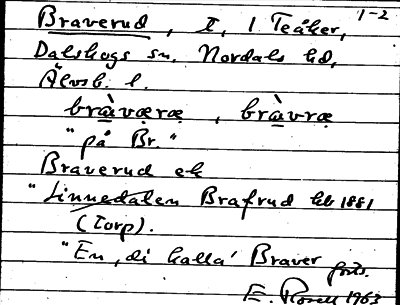 1-2
Braverud, I, 1 Teåker,
Dalskogs sn. Nordals hd,
Älvsb. l.
bràværæ, bràvræ
"på Br."
Braverud ek
"Linnedalen Brafrud hb 1881
(Torp).
"En, di kalla' Braver forts.
E. Rosell 1963